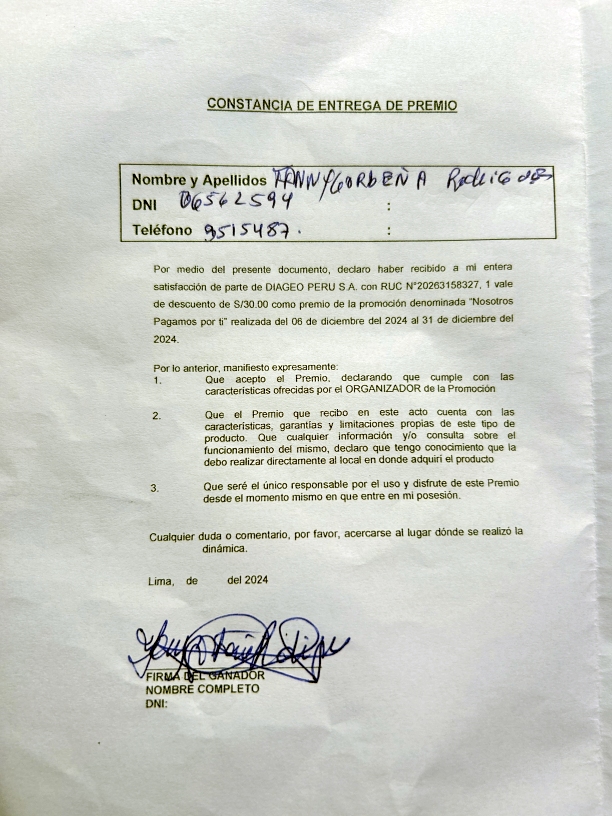 CONSTANCIA DE ENTREGA DE PREMIO
Nombre y Apellidos FANNY GORDEÑA Rodriguez
DNI 06562594 :
Teléfono 9515487. :
Por medio del presente documento, declaro haber recibido a mi entera
satisfacción de parte de DIAGEO PERU S.A. con RUC N°20263158327, 1 vale
de descuento de S/30.00 como premio de la promoción denominada "Nosotros
Pagamos por ti" realizada del 06 de diciembre del 2024 al 31 de diciembre del
2024.
Por lo anterior, manifiesto expresamente:
1. Que acepto el Premio, declarando que cumple con las
características ofrecidas por el ORGANIZADOR de la Promoción
2. Que el Premio que recibo en este acto cuenta con las
características, garantías y limitaciones propias de este tipo de
producto. Que cualquier información y/o consulta sobre el
funcionamiento del mismo, declaro que tengo conocimiento que la
debo realizar directamente al local en donde adquirí el producto
3. Que seré el único responsable por el uso y disfrute de este Premio
desde el momento mismo en que entre en mi posesión.
Cualquier duda o comentario, por favor, acercarse al lugar dónde se realizó la
dinámica.
Lima, de del 2024
FIRMA DEL GANADOR
NOMBRE COMPLETO
DNI: